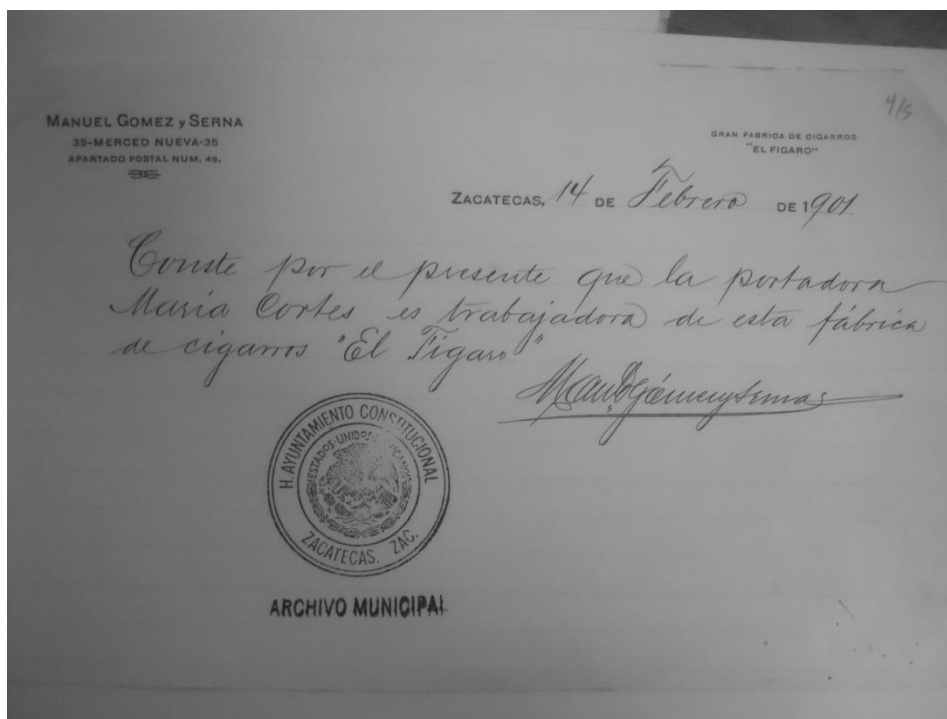 4/5
MANUEL GOMEZ y SERNA
35-MERCED NUEVA-35
APARTADO POSTAL NUM. 49.
GRAN FABRICA DE CIGARROS
"EL FIGARO"
ZACATECAS, 14 DE Febrero DE 1901.
Conste por el presente que la portadora
María Cortes es trabajadora de esta fábrica
de cigarros "El Figaro"
Manl Gómez y Serna
H. AYUNTAMIENTO CONSTITUCIONAL
ESTADOS UNIDOS MEXICANOS
ZACATECAS, ZAC.
ARCHIVO MUNICIPAL